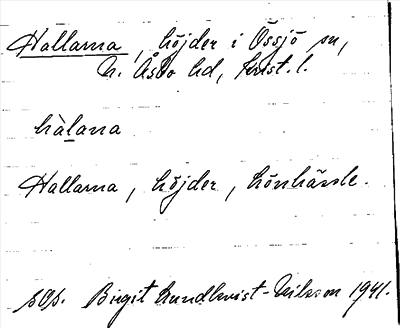 Hallarna, höjder i Össjö sn,
N. Åsbo hd, Krist. l.
hàlana
Hallarna, höjder, hörnhäsle.
sOp. Birgit Lundkvist-Nilsson 1941.